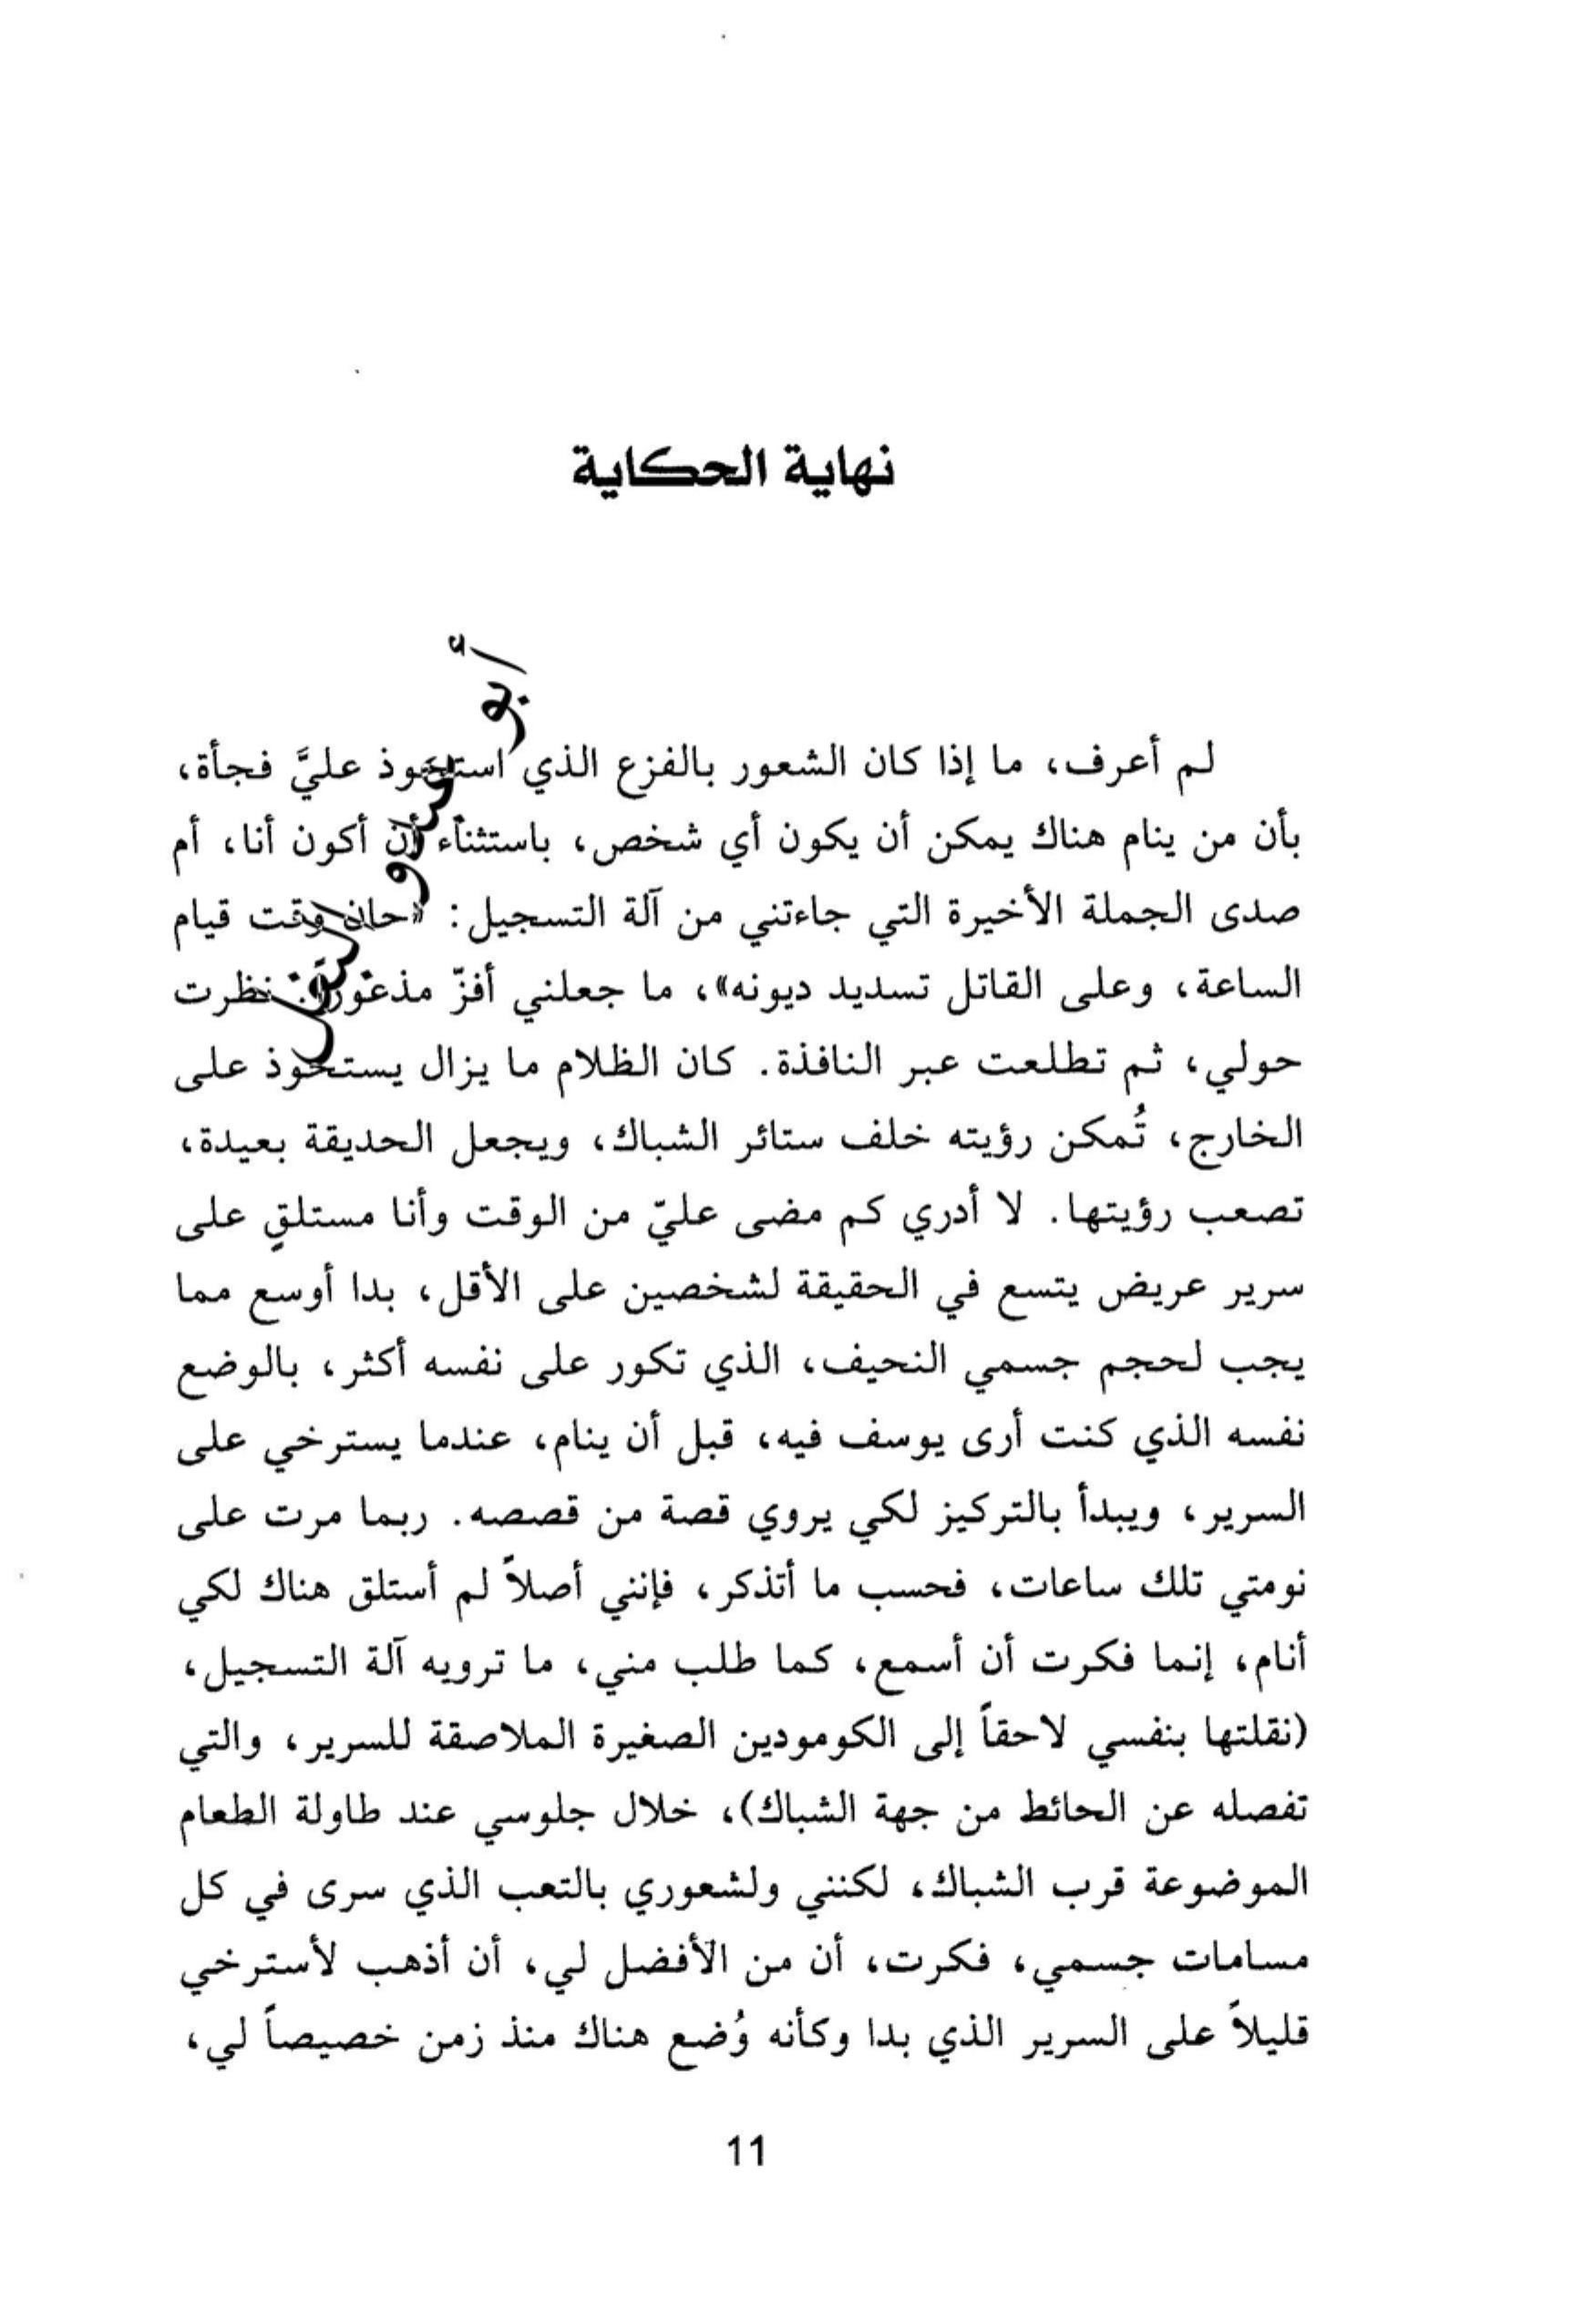 نهاية الحكاية
لم أعرف، ما إذا كان الشعور بالفزع الذي استحوذ عليَّ فجأة،
بأن من ينام هناك يمكن أن يكون أي شخص، باستثناء أن أكون أنا، أم
صدى الجملة الأخيرة التي جاءتني من آلة التسجيل: «حان وقت قيام
الساعة، وعلى القاتل تسديد ديونه»، ما جعلني أفزّ مذعوراً. نظرت
حولي، ثم تطلعت عبر النافذة. كان الظلام ما يزال يستحوذ على
الخارج، تُمكن رؤيته خلف ستائر الشباك، ويجعل الحديقة بعيدة،
تصعب رؤيتها. لا أدري كم مضى عليّ من الوقت وأنا مستلقٍ على
سرير عريض يتسع في الحقيقة لشخصين على الأقل، بدا أوسع مما
يجب لحجم جسمي النحيف، الذي تكور على نفسه أكثر، بالوضع
نفسه الذي كنت أرى يوسف فيه، قبل أن ينام، عندما يسترخي على
السرير، ويبدأ بالتركيز لكي يروي قصة من قصصه. ربما مرت على
نومتي تلك ساعات، فحسب ما أتذكر، فإنني أصلاً لم أستلق هناك لكي
أنام، إنما فكرت أن أسمع، كما طلب مني، ما ترويه آلة التسجيل،
(نقلتها بنفسي لاحقاً إلى الكومودين الصغيرة الملاصقة للسرير، والتي
تفصله عن الحائط من جهة الشباك)، خلال جلوسي عند طاولة الطعام
الموضوعة قرب الشباك، لكنني ولشعوري بالتعب الذي سرى في كل
مسامات جسمي، فكرت، أن من الأفضل لي، أن أذهب لأسترخي
قليلاً على السرير الذي بدا وكأنه وُضع هناك منذ زمن خصيصاً لي،
11